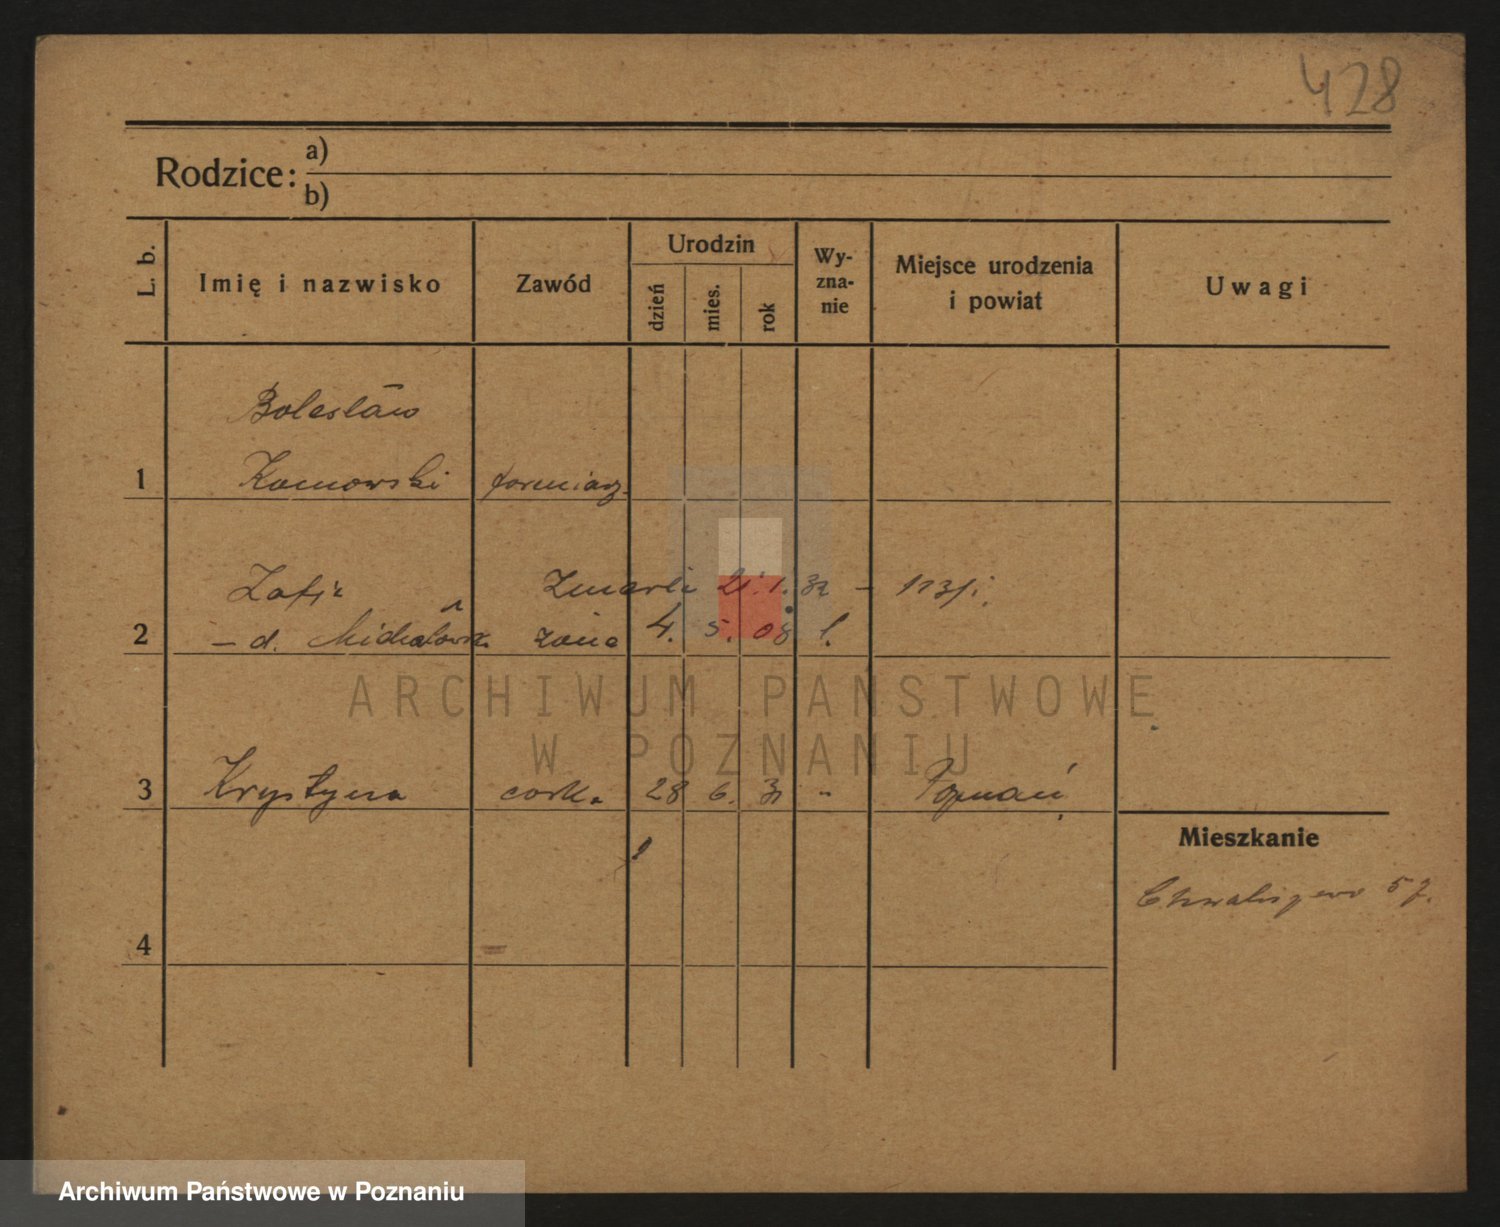 428
Rodzice: a)
b)
L. b. Imię i nazwisko Zawód Urodzin dzień mies. rok Wy-zna-nie Miejsce urodzenia i powiat Uwagi
Bolesław
1 Komowski formiarz
Zofja Zmarła 21.1.32 – 113/i.
2 – d. Michałowska żona 4. 5. 08 l.
ARCHIWUM PAŃSTWOWE
W POZNANIU
3 Krystyna córka 28 6. 31 " Poznań
Mieszkanie
Chwaliszewo 57.
4
Archiwum Państwowe w Poznaniu